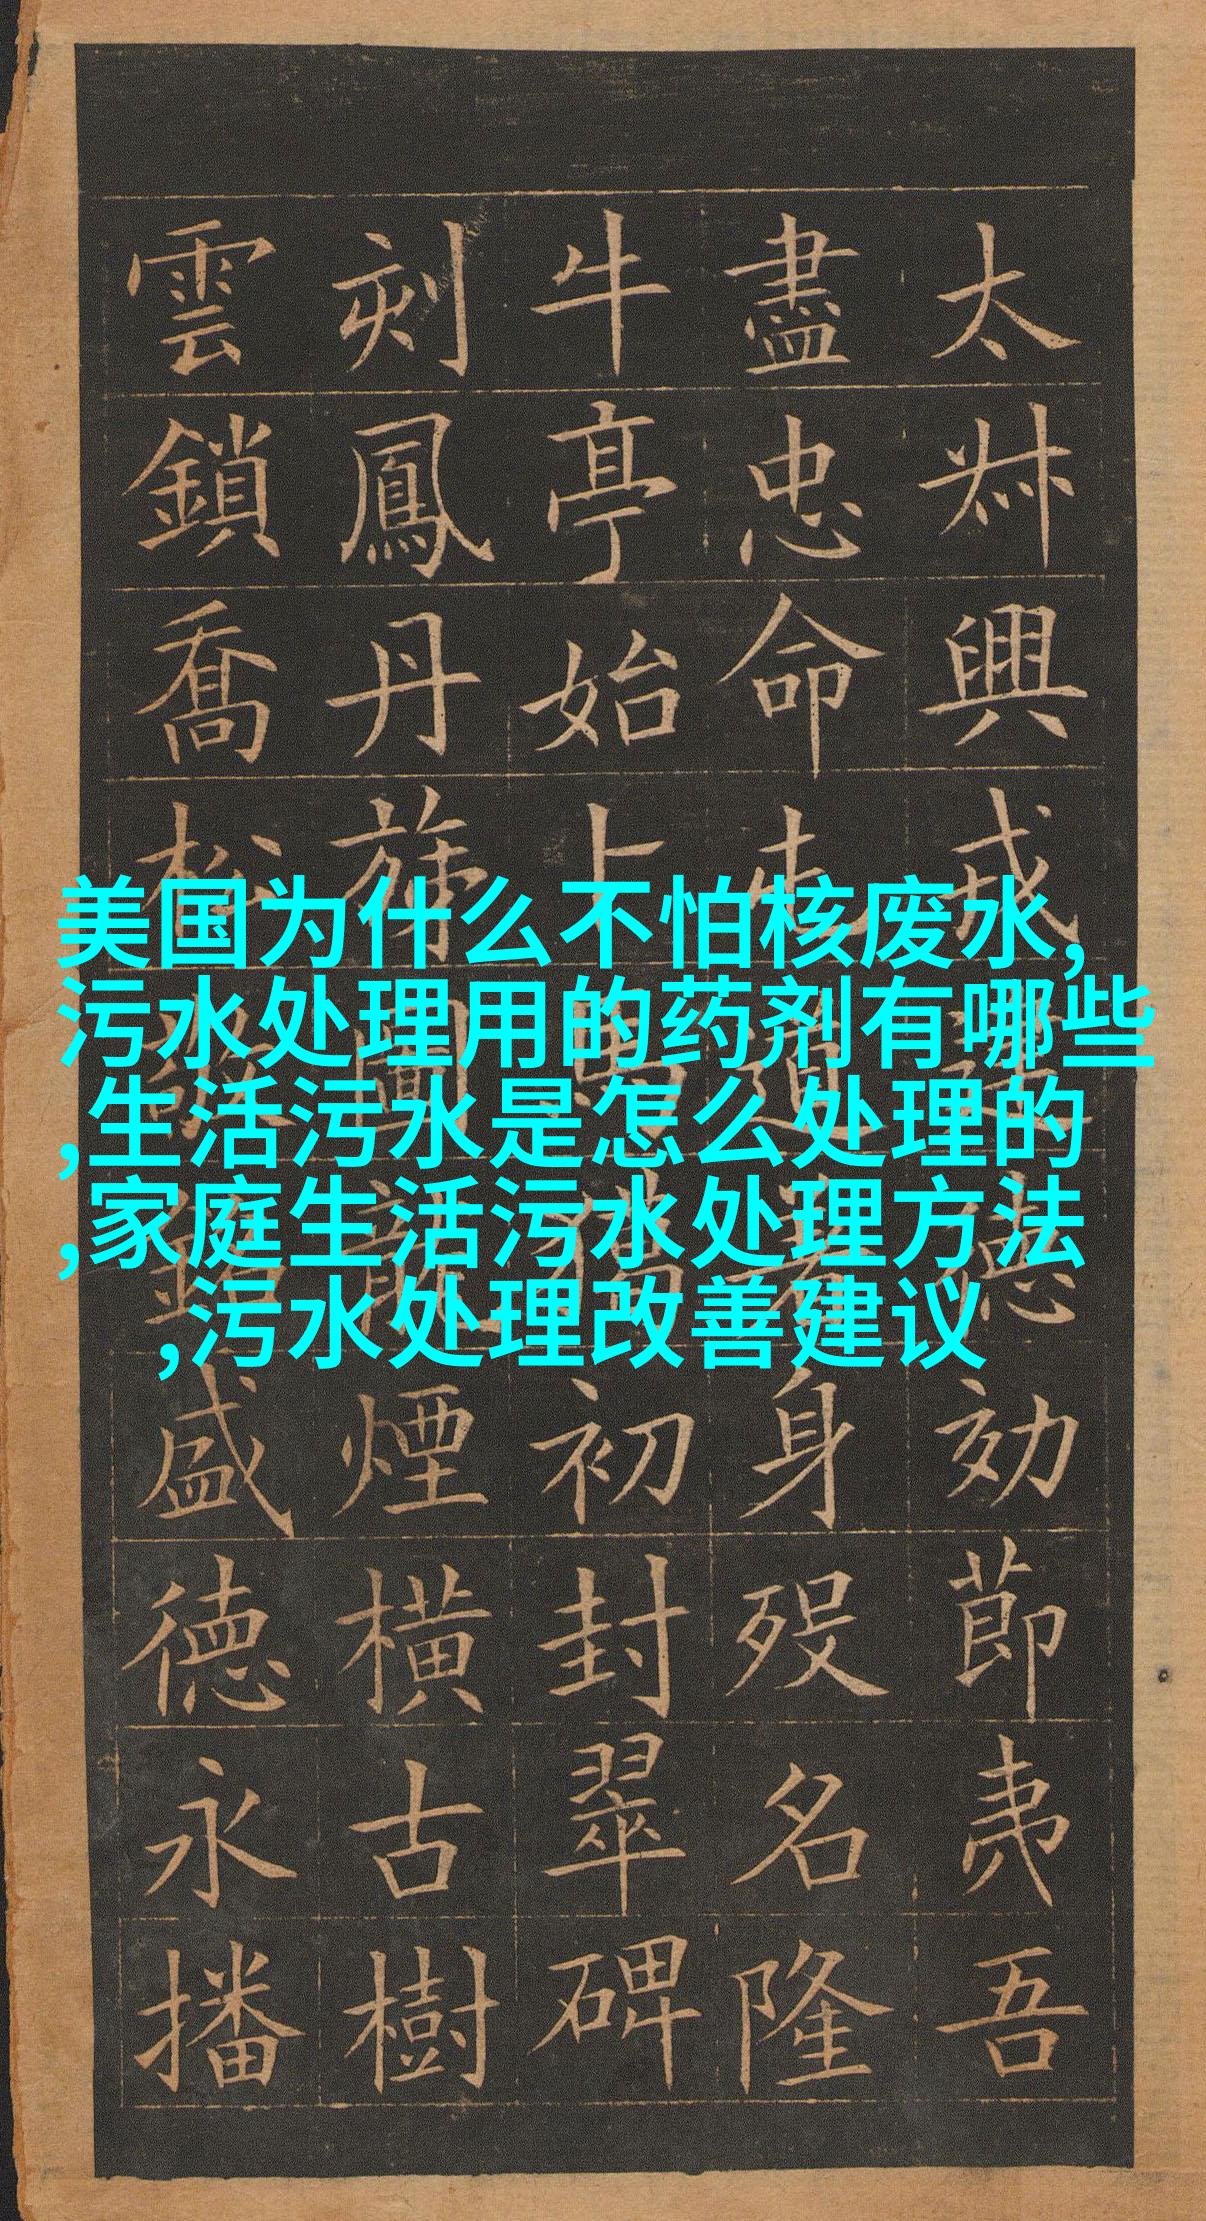 美国为什么不怕核废水,
污水处理用的药剂有哪些
,生活污水是怎么处理的
,家庭生活污水处理方法
,污水处理改善建议
太興効節夷吾
盡忠命身歿名隆
牛亭始卜初封翠碑
刻鳳丹煙橫古樹
雲鎖喬松盛德永播